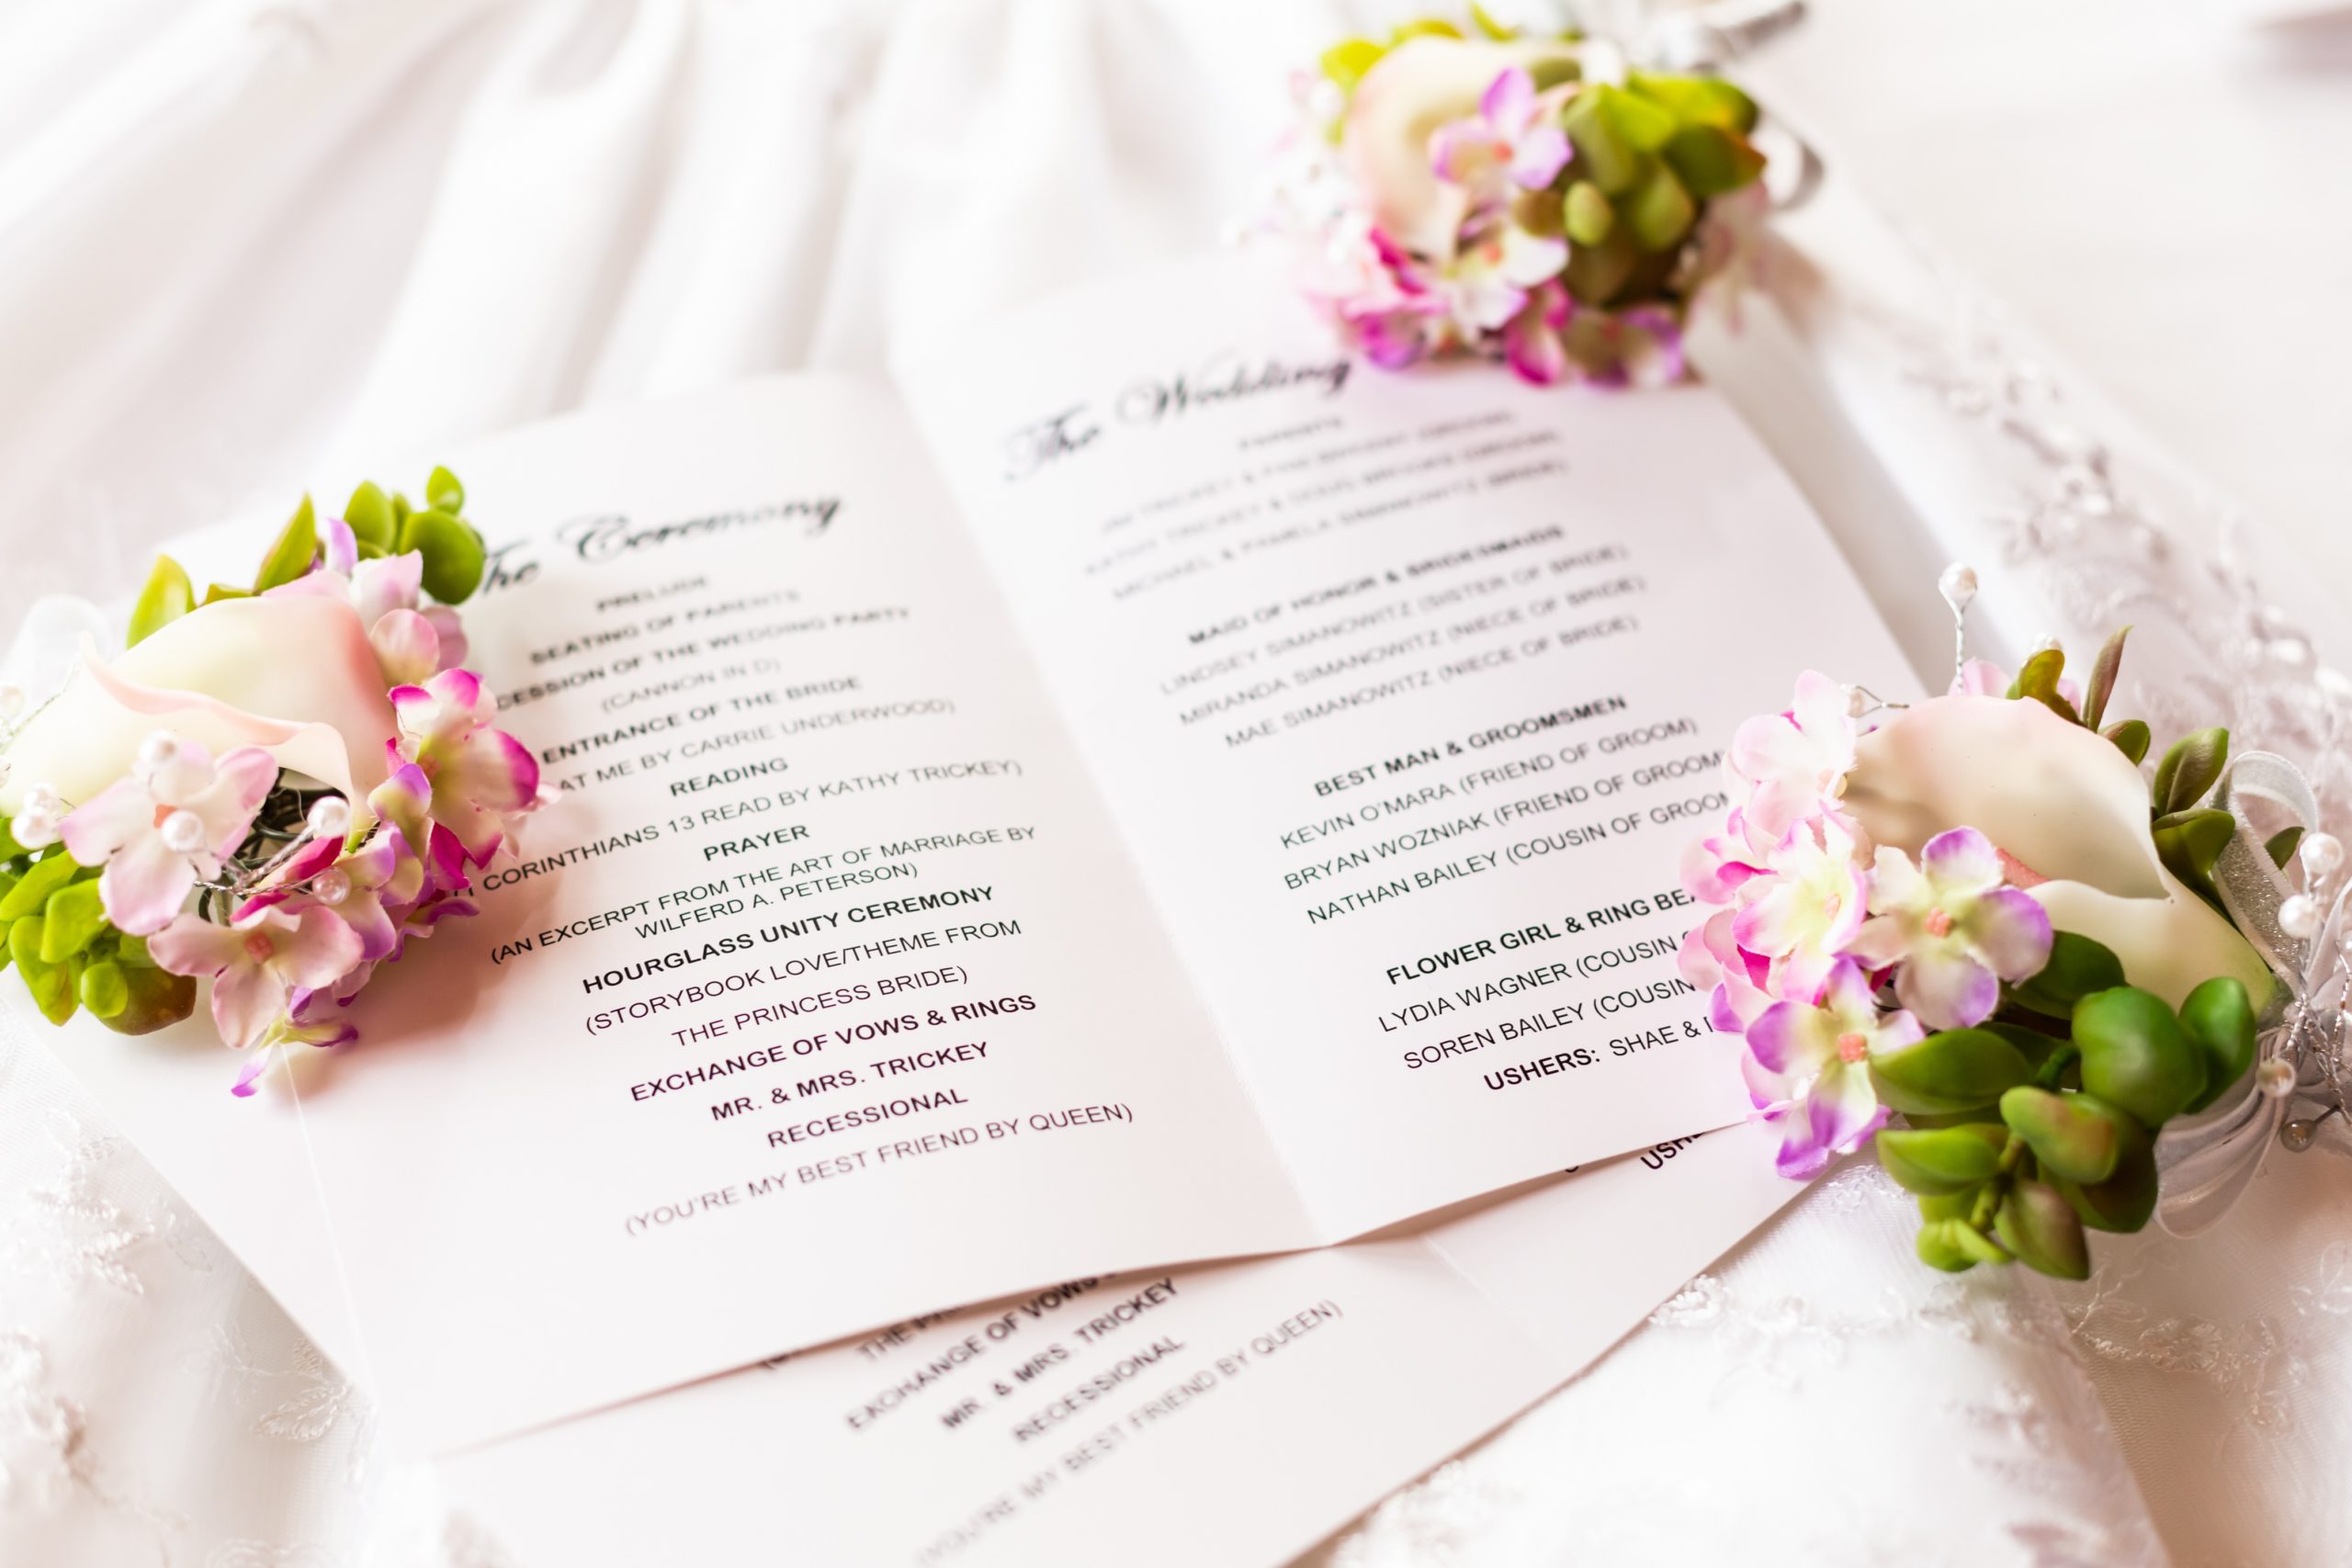 The Ceremony
PRELUDE
SEATING OF PARENTS
CESSION OF THE WEDDING PARTY
(CANNON IN D)
ENTRANCE OF THE BRIDE
AT ME BY CARRIE UNDERWOOD)
READING
CORINTHIANS 13 READ BY KATHY TRICKEY)
PRAYER
(AN EXCERPT FROM THE ART OF MARRIAGE BY
WILFERD A. PETERSON)
HOURGLASS UNITY CEREMONY
(STORYBOOK LOVE/THEME FROM
THE PRINCESS BRIDE)
EXCHANGE OF VOWS & RINGS
MR. & MRS. TRICKEY
RECESSIONAL
(YOU'RE MY BEST FRIEND BY QUEEN)
The Wedding
PARENTS
KATHY TRICKEY &
MICHAEL & PAMELA SIMANOWITZ (BRIDE)
MAID OF HONOR & BRIDESMAIDS
LINDSEY SIMANOWITZ (SISTER OF BRIDE)
MIRANDA SIMANOWITZ (NIECE OF BRIDE)
MAE SIMANOWITZ (NIECE OF BRIDE)
BEST MAN & GROOMSMEN
KEVIN O'MARA (FRIEND OF GROOM)
BRYAN WOZNIAK (FRIEND OF GROOM
NATHAN BAILEY (COUSIN OF GROOM
FLOWER GIRL & RING BEA
LYDIA WAGNER (COUSIN
SOREN BAILEY (COUSIN
USHERS: SHAE &
USH
THE
EXCHANGE OF VOWS
MR. & MRS. TRICKEY
RECESSIONAL
(YOU'RE MY BEST FRIEND BY QUEEN)